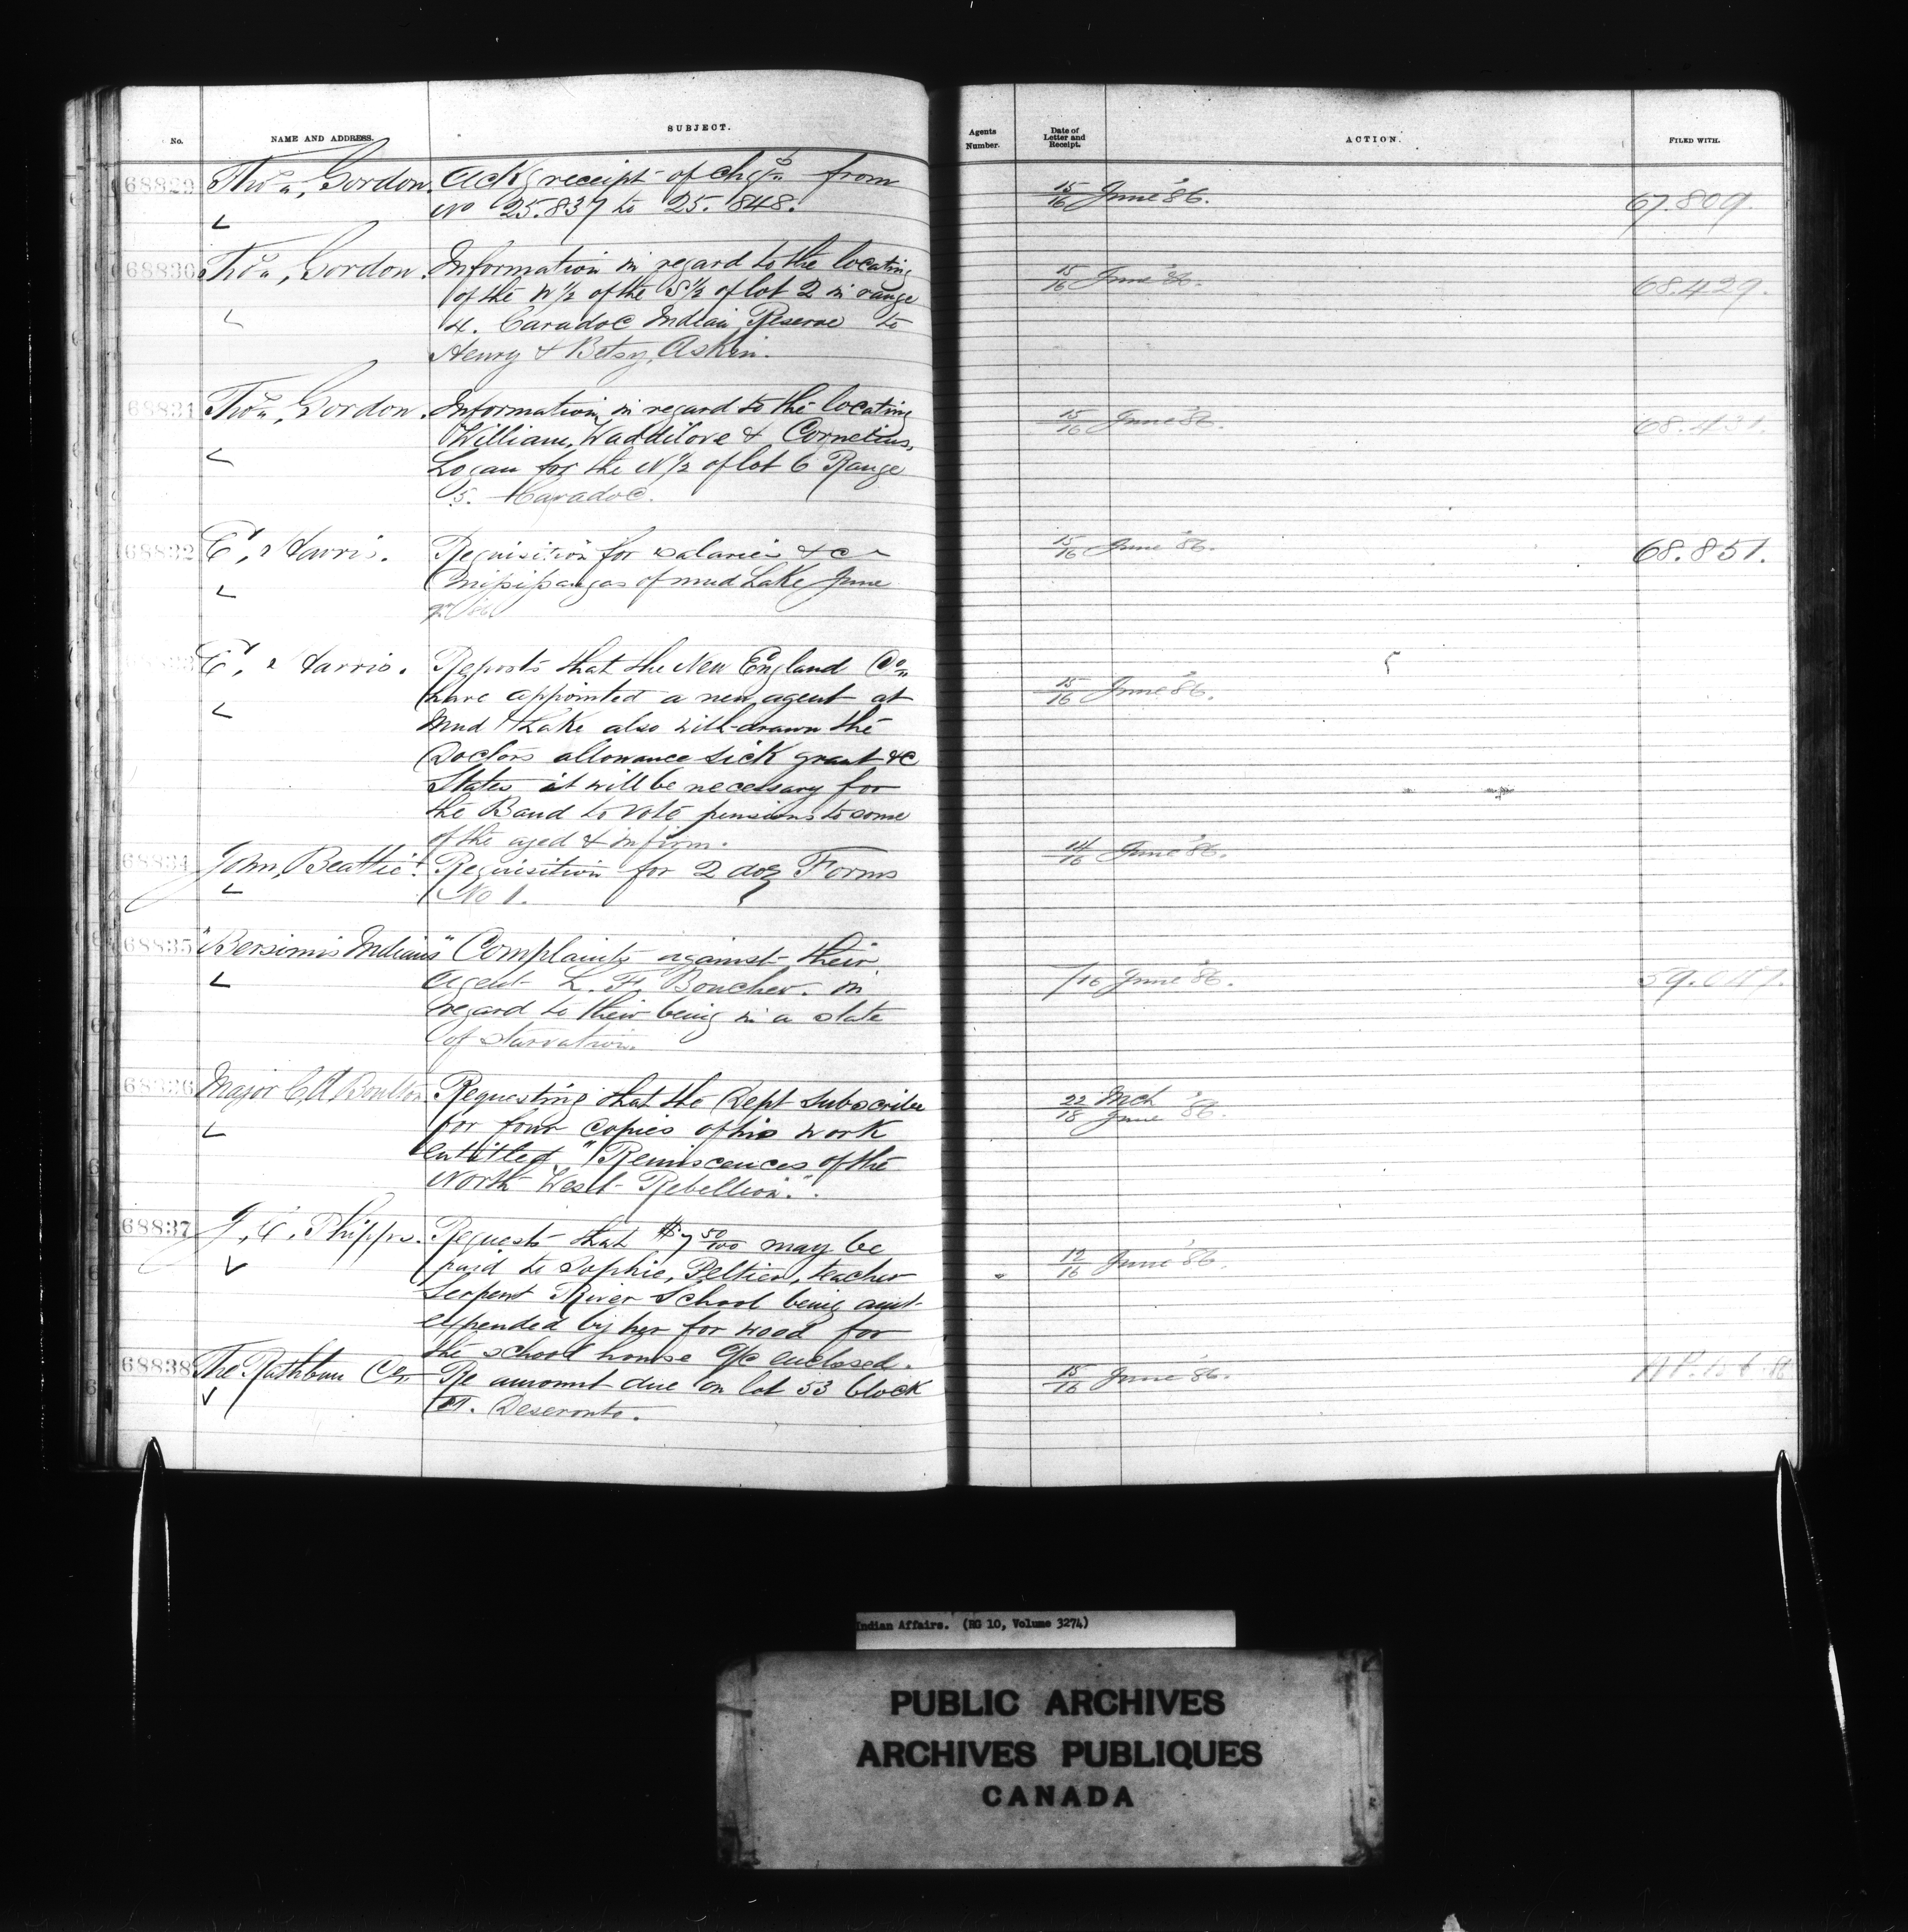 No.
NAME AND ADDRESS.
SUBJECT.
Agents Number.
Date of Letter and Receipt.
ACTION.
FILED WITH.
68829 Thos, Gordon, Ackg receipt of chqs from 15/16 June '86. 67.809.
No 25.837 to 25.848.
68830 Thos, Gordon. Information in regard to the locating 15/16 June '86. 68.429.
of the N 1/2 of the S 1/2 of lot 2 in range
4. Caradoc Indian Reserve to
Henry & Betsy, Askin.
68831 Thos, Gordon. Information, in regard to the locating 15/16 June '86. 68.431.
William, Waddilove & Cornelius,
Logan for the N 1/2 of lot 6 Range
5. Caradoc.
68832 E, Harris. Requisition for salaries &c 15/16 June '86. 68.851.
Missisaugas of mud Lake June
E, Harris. Reports that the New England Co 15/16 June '86.
have appointed a new agent at
Mud Lake also with-drawn the
Doctors allowance sick grant &c
States it will be necessary for
the Band to vote pensions to some
of the aged & infirm.
68834 John, Beattie. Requisition for 2 doz Forms 14/16 June '86.
No 1.
68835 "Bersimis Indians" Complaints against their
Agent L. F. Boucher. in /16 June '86.
regard to their being in a state
of starvation.
68836 Major C A Boulton Requesting that the Dept subscribe 22 Mch / 18 June '86.
for four copies of his work
entitled "Reminscences of the
North West Rebellion".
68837 J, C, Phipps. Requests that $7 50/100 may be
paid to Sophie, Peltier, teacher 12/16 June '86.
Serpent River School being amt
expended by her for wood for
the school house a/c enclosed.
68838 The Rathbun Co Re amount due on lot 53 block 15/16 June '86.
Deseronto.
Indian Affairs. (RG 10, Volume 3274)
PUBLIC ARCHIVES
ARCHIVES PUBLIQUES
CANADA